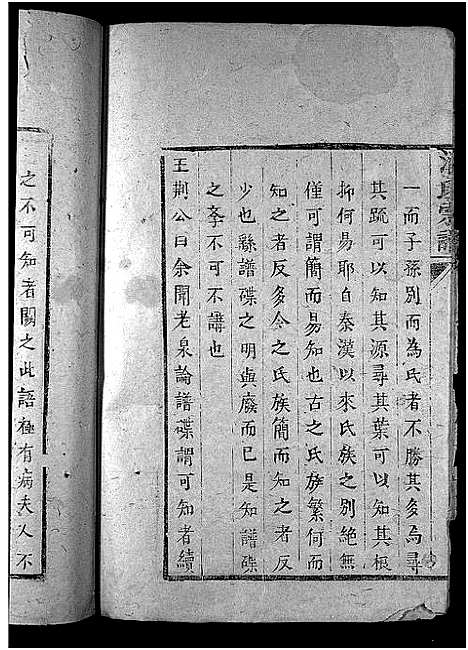 氏宗譜
一而子孫别而為氏者不勝其多焉尋
其疏可以知其源尋其葉可以知其根
抑何易耶自秦漢以來氏族之别絕無
僅可謂簡而易知也古之氏族繁何而
知之者反多今之氏族簡而知之者反
少也繇譜牒之明與廢而已是知譜牒
之学不可不講也
王荆公曰余聞老泉論譜牒謂可知者續
之不可知者闕之此語極有病夫人不